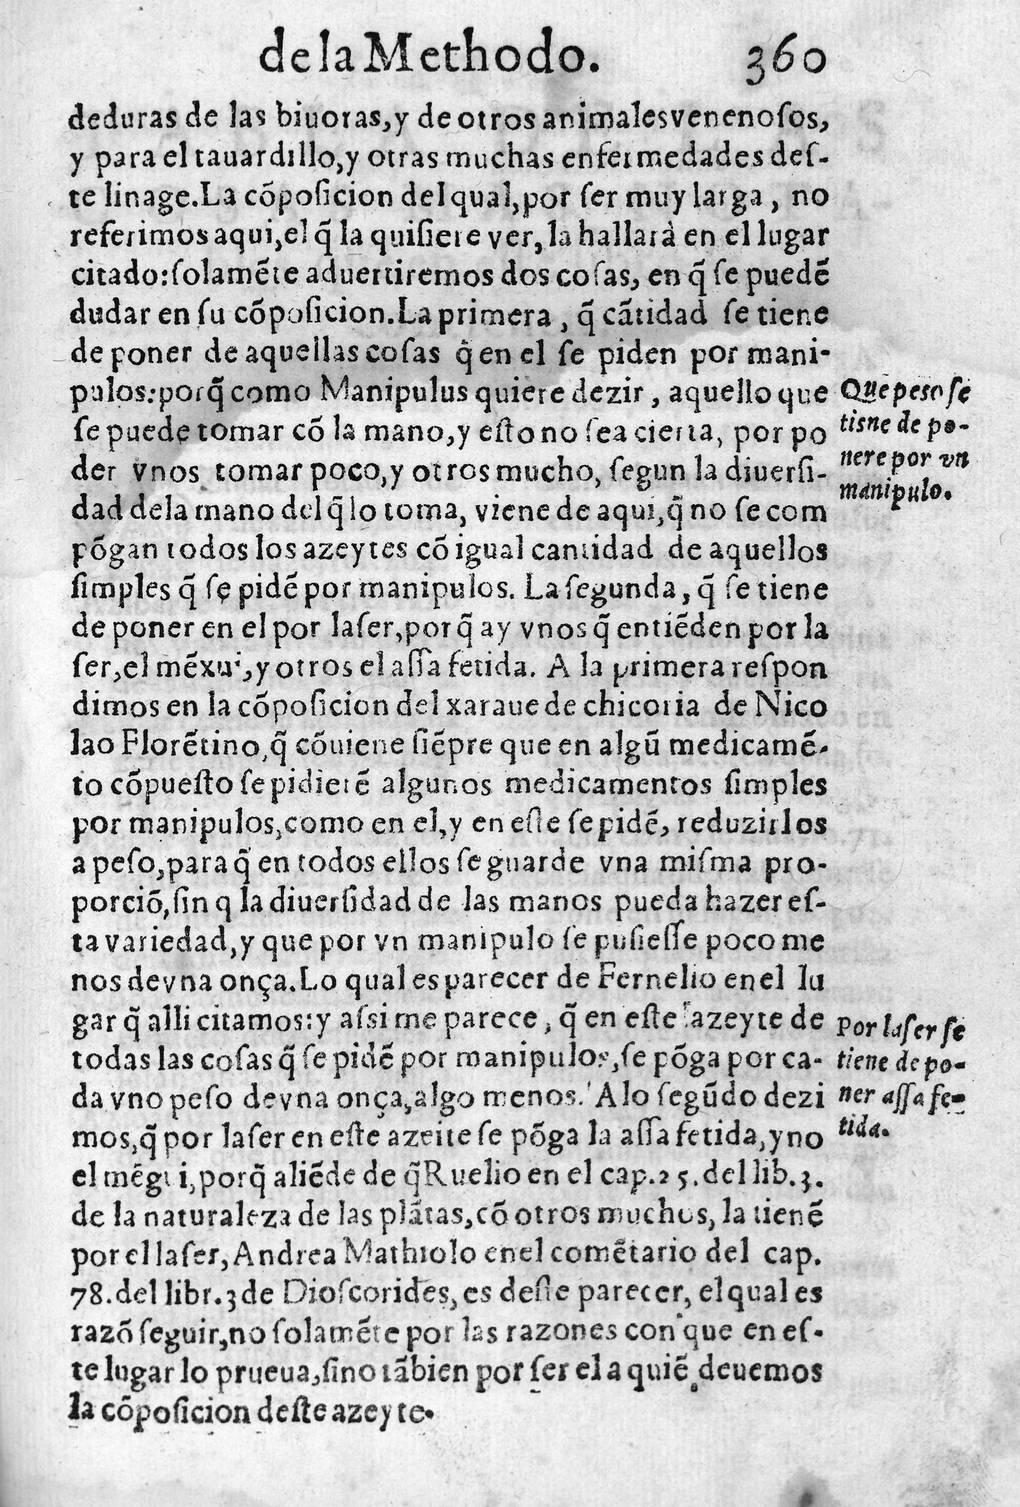 de la Methodo. 360
deduras de las biuoras,y de otros animales venenoſos,
y para el tauardillo,y otras muchas enfermedades deſ-
te linage.La cõpoſicion del qual,por ſer muy larga, no
referimos aqui,el q̃ la quiſiere ver, la hallarà en el lugar
citado:ſolamẽte aduertiremos dos coſas, en q̃ ſe puedẽ
dudar en ſu cõpoſicion.La primera, q̃ cãtidad ſe tiene
de poner de aquellas coſas q̃ en el ſe piden por mani-
pulos:porq̃ como Manipulus quiere dezir, aquello que
ſe puede tomar cõ la mano,y eſto no ſea cierta, por po
der vnos tomar poco,y otros mucho, ſegun la diuerſi-
dad dela mano del q̃ lo toma, viene de aqui,q̃ no ſe com
põgan todos los azeytes cõ igual cantidad de aquellos
ſimples q̃ ſe pidẽ por manipulos. La ſegunda, q̃ ſe tiene
de poner en el por laſer,porq̃ ay vnos q̃ entiẽden por la
ſer,el mẽxui,y otros el aſſa fetida. A la primera reſpon
dimos en la cõpoſicion del xaraue de chicoria de Nico
lao Florẽtino,q̃ cõuiene ſiẽpre que en algũ medicamẽ-
to cõpueſto ſe pidierẽ algunos medicamentos ſimples
por manipulos,como en el,y en eſte ſe pidẽ, reduzirlos
a peſo,para q̃ en todos ellos ſe guarde vna miſma pro-
porciõ,ſin q la diuerſidad de las manos pueda hazer eſ-
ta variedad,y que por vn manipulo ſe puſieſſe poco me
nos de vna onça.Lo qual es parecer de Fernelio en el lu
gar q̃ alli citamos:y aſsi me parece, q̃ en eſte azeyte de
todas las coſas q̃ ſe pidẽ por manipulos,ſe põga por ca-
da vno peſo de vna onça,algo menos. A lo ſegũdo dezi
mos,q̃ por laſer en eſte azeite ſe põga la aſſa fetida,y no
el mẽgui,porq̃ aliẽde de q̃ Ruelio en el cap.25.del lib.3.
de la naturaleza de las plãtas,cõ otros muchos, la tienẽ
por el laſer, Andrea Mathiolo en el comẽtario del cap.
78.del libr.3 de Dioſcorides, es deſte parecer, el qual es
razõ ſeguir,no ſolamẽte por las razones con que en eſ-
te lugar lo prueua,ſino tãbien por ſer el a quiẽ deuemos
la cõpoſicion deſte azeyte.
Que peſo ſe
tiene de po-
nere por vn
manipulo.
Por laſer ſe
tiene de po-
ner aſſa fe-
tida.